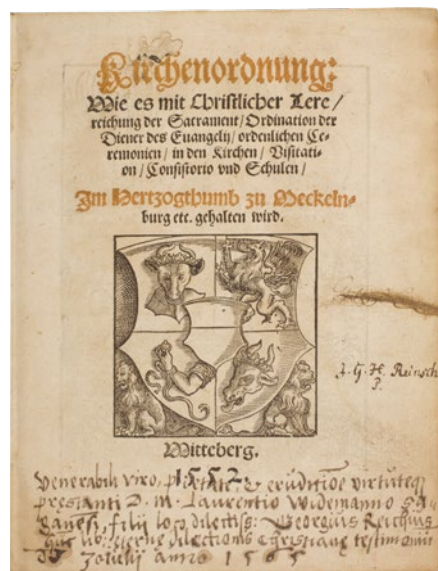 Kirchenordnung:
Wie es mit Christlicher Lere /
reichung der Sacrament / Ordination der
Diener des Euangelij / ordenlichen Ce-
remonien / in den Kirchen / Visitati-
on / Consistorio vnd Schulen /
Im Hertzogthumb zu Meckeln-
burg etc. gehalten wird.
J. G. H. Reinsch
P.
Witteberg.
1552.
Venerabili viro, pietate & eruditioe virtuteq
prestanti D. M. Laurentio Widemanno
filij loco dilectiss: Georgius
christiane testimonium
anno 1565